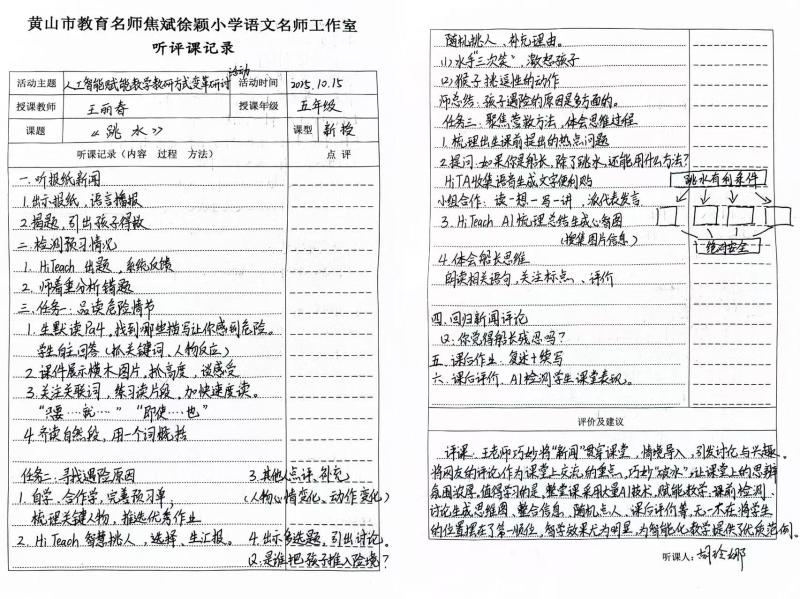 黄山市教育名师焦斌徐颖小学语文名师工作室
听评课记录
活动主题 人工智能赋能教学教研方式变革研讨活动 活动时间 2025.10.15
授课教师 王丽春 授课年级 五年级
课题 《跳水》 课型 新授
听课记录（内容 过程 方法） 点 评
一. 听报纸新闻
1.出示报纸，语言播报
2.揭题，引出孩子得救
二. 检测预习情况
1. HiTeach 出题，系统反馈
2. 师着重分析错题
三. 任务一：品读危险情节
1.生默读后4，找到哪些描写让你感到危险。
学生自主回答（抓关键词、人物反应）
2.课件展示横木图片，抓高度，谈感受
3.关注关联词，练习读片段，加快速度读。
“只要……就……” “即使……也”
4.齐读自然段，用一个词概括
任务二：寻找遇险原因
1.自学、合作学，完善预习单；
梳理关键人物，推选优秀作业
2. HiTeach 智慧挑人，选择、生汇报。
3.其他人点评、补充
（人物心情变化、动作变化）
4.出示多选题，引出讨论。
Q:是谁把孩子推入险境？
随机挑人，补充理由。
(1)水手“三次笑”，激怒孩子
(2)猴子挑逗性的动作
师总结：孩子遇险的原因是多方面的。
任务三：聚焦营救方法，体会思维过程
1.梳理出生课前提出的热点问题
2.提问：如果你是船长，除了跳水，还能用什么方法？
HiTA收集语音生成文字便利贴
小组合作：读一想一写一讲，派代表发言
3. HiTeach AI梳理总结生成心智图
（搜集图片信息）
跳水有利条件
绝对安全
4.体会船长思维
朗读相关语句，关注标点、评价
四. 回归新闻评论
Q:你觉得船长残忍吗？
五. 课后作业：复述+续写
六. 课后评价，AI检测学生课堂表现。
评价及建议
评课：王老师巧妙将“新闻”贯穿课堂，情境导入，引发讨论与兴趣。
将网友的评论作为课堂上交流的重点，巧妙“破冰”，让课堂上的思辨
氛围浓厚。值得学习的是，整堂课采用大量AI技术，赋能教学：课前检测、
讨论生成思维图、整合信息、随机点人、课后评价等，无一不在将学生
的位置摆在了第一顺位，智学效果尤为明显，为智能化教学提供了优质范例。
听课人：胡玲娜